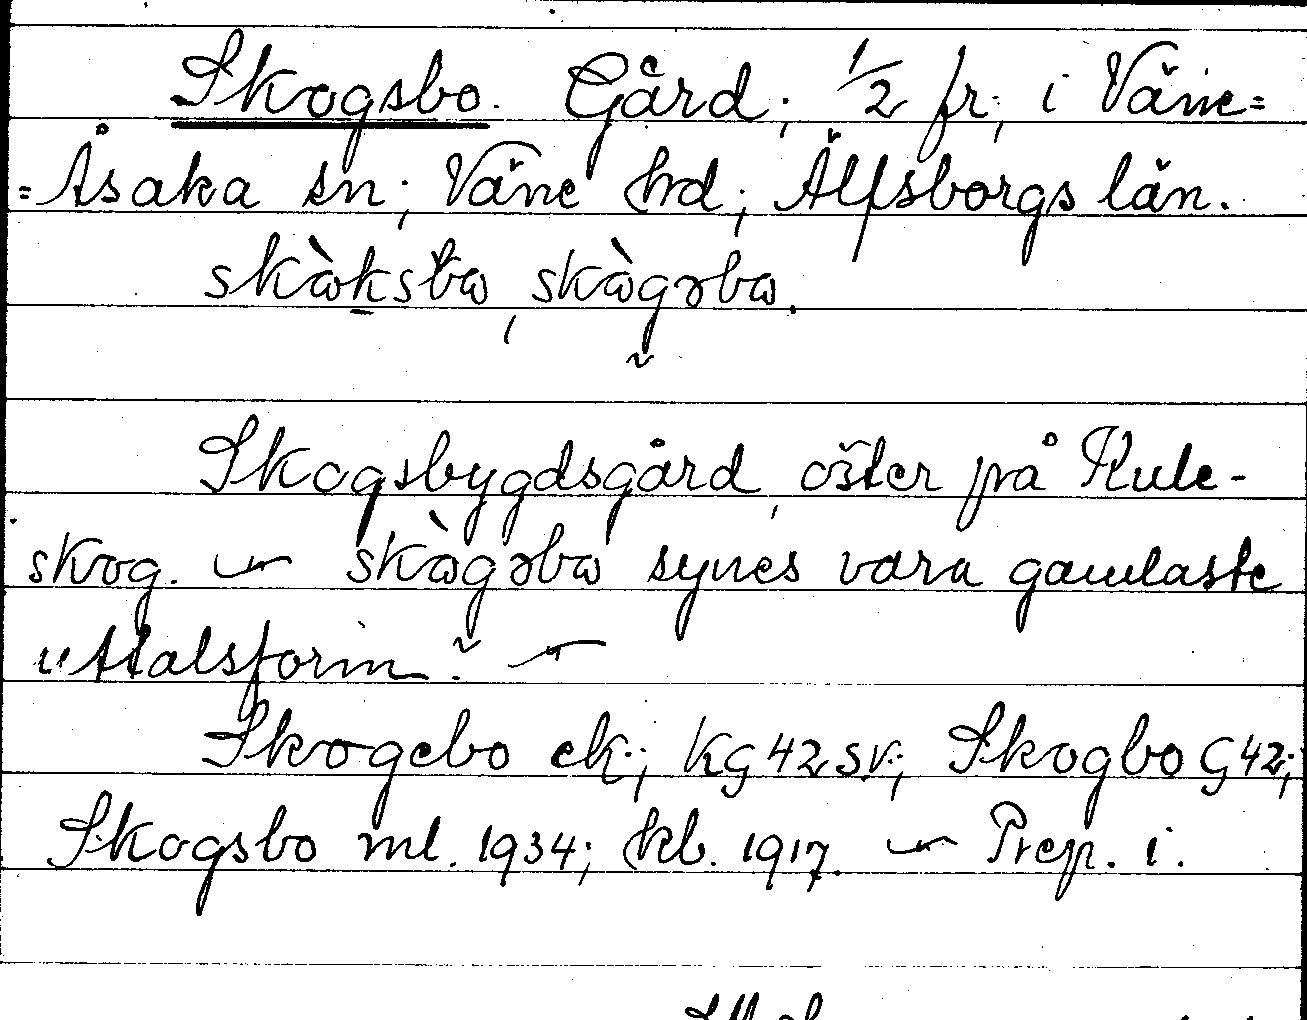 Skogsbo. Gård, 1/2 fr, i Väne=
=Åsaka sn; Väne hd; Älfsborgs län.
skὼksbω, skὼgəbω.
Skogsbygdsgård, öster på Kule-
skog. — skὼgəbω synes vara gamlaste
uttalsform. —
Skogebo ek.; KG 42 SV; Skogbo G 42;
Skogsbo ml. 1934; hkb. 1917. — Prep. i.